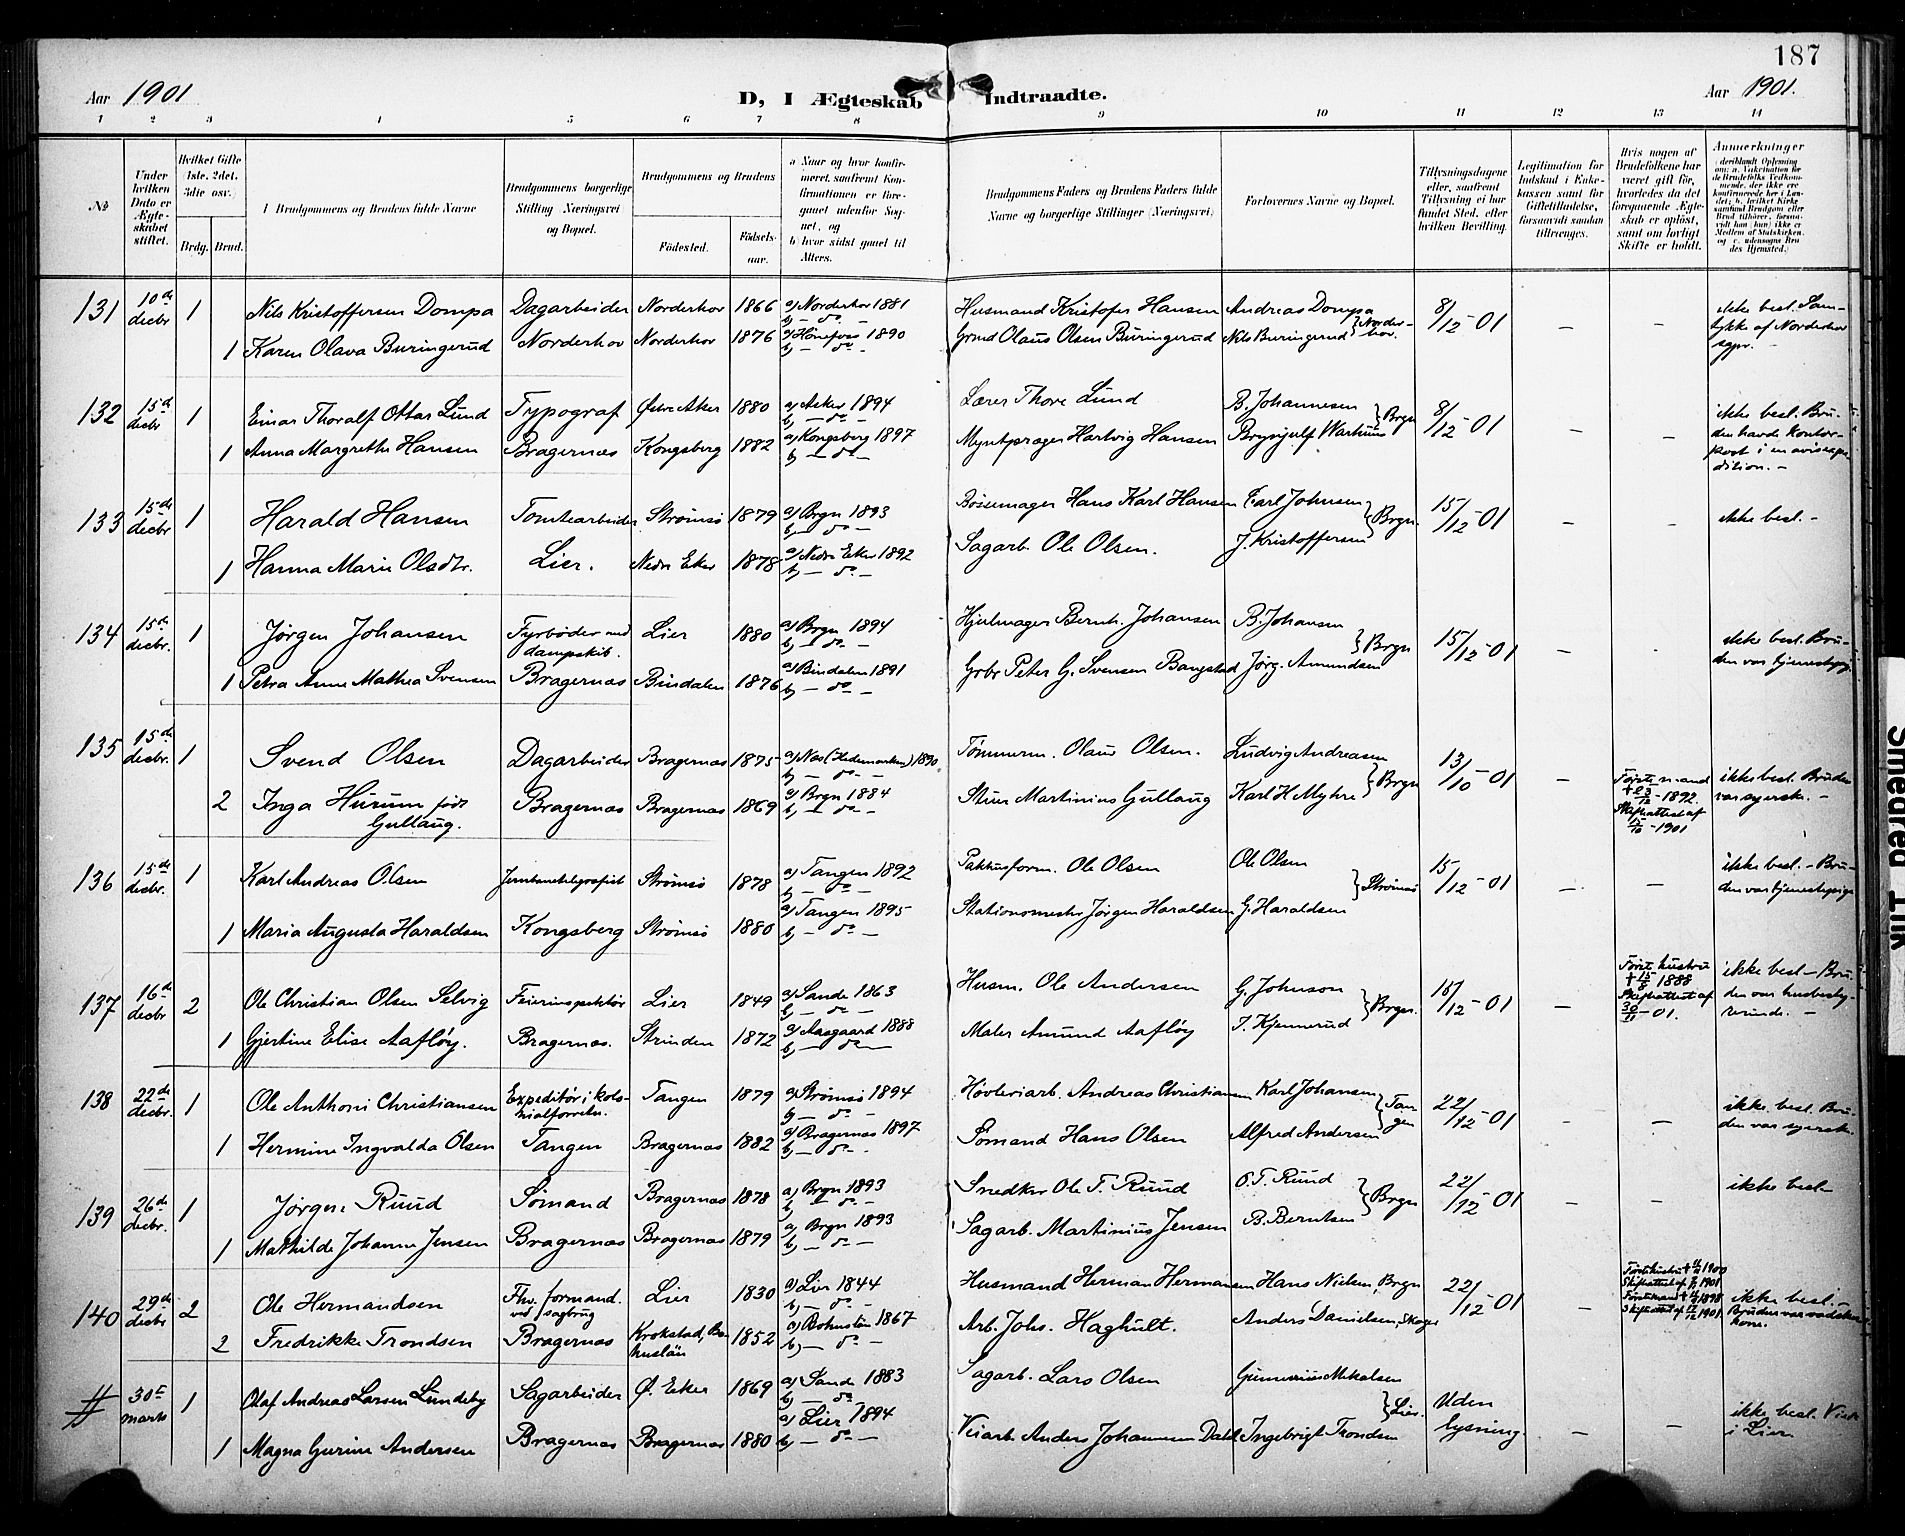 187
Aar 1901
D, I Ægteskab Indtraadte.
Aar 1901.
1 2 3 4 5 6 7 8 9 10 11 12 13 14
№
Under hvilken Dato er Ægteskabet stiftet.
Hvilket Gifte (1ste. 2det. 3die osv.)
Brdg. Brud.
Brudgommens og Brudens fulde Navne
Brudgommens borgerlige Stilling Næringsvei og Bopæl.
Brudgommens og Brudens
Fødested.
Fødsels-aar.
a Naar og hvor konfirmeret, saafremt Konfirmationen er foregaaet udenfor Sognet, og
b) hvor sidst gaaet til Alters.
Brudgommens Faders og Brudens Faders fulde Navne og borgerlige Stillinger (Næringsvei)
Forlovernes Navne og Bopæl.
Tillysningsdagene eller, saafremt Tillysning ei har fundet Sted, efter hvilken Bevilling.
Legitimation for Indskud i Enkekassen samt for Giftetilladelse, forsaavidt saadan tiltrænges.
Hvis nogen af Brudefolkene har været gift før, hvorledes da det foregaaende Ægteskab er opløst, samt om lovligt Skifte er holdt.
Anmerkninger
131 10de decbr 1 Nils Kristoffersen Dompa Dagarbeider Norderhov 1866 a) Norderhov 1881 Husmand Kristofer Hansen Andreas Dompa 8/12-01 ikke besl. Sam-
b) — do — tykke af Norderhov
1 Karen Olava Buringerud Norderhov Norderhov 1876 a) Hönefos 1890 Grmd Olaus Olsen Buringerud Nils Buringerud } Norderhov.
b) — do —
132 15de decbr 1 Einar Thoralf Ottar Lund Typograf Østre Aker 1880 a) Asker 1894 Lærer Thore Lund B. Johannesen } Brgn 8/12-01 ikke besl. Bru-
b) — do — den havde kontor-
1 Anna Margrethe Hansen Bragernæs Kongsberg 1882 a) Kongsberg 1897 Myntpræger Hartvig Hansen Brynjulf Warhuus post i en avisexpe-
b) — do — dition. —
133 15de decbr 1 Harald Hansen Tomtearbeider Strømsø 1879 a) Brgn 1893 Bøssemager Hans Karl Hansen Carl Johnsen } Brgn. 15/12-01 ikke besl. —
b) — do —
1 Hanna Marie Olsdtr. Lier. Nedre Eker 1878 a) Nedre Eker 1892 Sagarb. Ole Olsen. J. Kristoffersen
b) — do —
134 15de decbr. 1 Jørgen Johansen Fyrbøder med dampskib. Lier 1880 a) Brgn 1894 Hjulmager Bernh. Johansen B. Johansen } Brgn 15/12-01 ikke besl. Bru-
b) — do — den var tjenestepige
1 Petra Anne Mathea Svensen Bragernæs Bindalen 1876 a) Bindalen 1891 Grbr Peter G. Svensen Bangstad Jørg. Amundsen
b) — do —
135 15de decbr. 1 Svend Olsen Dagarbeider Bragernæs 1875 a) Næs (Hedemarken) 1890 Tømmerm. Olaus Olsen. Ludvig Andreasen } Brgn 13/10-01 Første mand ikke besl. Bruden
b) — do — 1892. var syerske. —
2 Inga Hurum født Gullaug. Bragernæs Bragernæs 1869 a) Brgn 1884 Stuer Martinius Gullaug Karl H Myhre Skifteattest af
b) — do — 1901
136 15de decbr. 1 Karl Andreas Olsen Jernbanetelegrafist Strømsø 1878 a) Tangen 1892 Pakhusform. Ole Olsen Ole Olsen } Strømsø 15/12-01 ikke besl. — Bru-
b) — do — den var tjenestepige
1 Maria Augusta Haraldsen Kongsberg Strømsø 1880 a) Tangen 1895 Stationsmester Jørgen Haraldsen G. Haraldsen
b) — do —
137 16de decbr 2 Ole Christian Olsen Selvig Feierinspektør Lier 1849 a) Sande 1863 Husm. Ole Andersen G. Johnson } Brgn. 15/12-01 Første hustru ikke besl — Bru-
b) — do — † 1888 den var husbesty-
1 Gjertine Elise Aafløy. Bragernæs. Strinden 1872 a) Aasgaard 1888 Maler Amund Aafløy T. Kjennerud Skifteattest af 30/11-01. rerinde. —
b) — do —
138 22de decbr. 1 Ole Anthoni Christiansen Expeditør i kolonialforretn. Tangen 1879 a) Strømsø 1894 Høvleriarb. Andreas Christiansen Karl Johansen } Tangen 22/12-01 ikke besl. Bru-
b) — do — den var syerske.
1 Hermine Ingvalda Olsen Tangen Bragernæs 1882 a) Bragernæs 1897 Sømand Hans Olsen Alfred Andersen
b) — do —
139 26de decbr. 1 Jørgen Ruud Sømand Bragernæs 1878 a) Brgn 1893 Snedker Ole T. Ruud O. T. Ruud } Brgn 22/12-01 ikke besl —
b) — do —
1 Mathilde Johanne Jensen Bragernæs Bragernæs 1879 a) Brgn 1893 Sagarb. Martinius Jensen B. Berntsen
b) — do —
140 29de decbr 2 Ole Hermandsen Fhv. formand ved sagbrug Lier 1830 a) Lier 1844 Husmand Herman Hermansen Hans Nielsen, Brgn 22/12-01 Første hustru † 1900 ikke besl. —
b) — do — Skifteattest af 1901 Bruden var vadsker-
2 Fredrikke Trondsen Bragernæs Krokstad, Bohuslän 1852 a) Bohuslän 1867 Arb. Johs. Haghult. Anders Danielsen, Skoger Første mand † 1898 kone.
b) — do — Skifteattest af 1901
# 30te marts 1 Olaf Andreas Larsen Lundeby Sagarbeider Ø. Eker 1869 a) Sande 1883 Sagarb. Lars Olsen Gunerius Mikalsen } Lier. Uden lysning ikke besl. Viet i Lier
b) — do —
1 Magna Gurine Andersen Bragernæs Bragernæs 1880 a) Lier 1894 Veiarb. Anders Johannesen Dahl Ingebrigt Trondsen
b) — do —
Smedred Ink